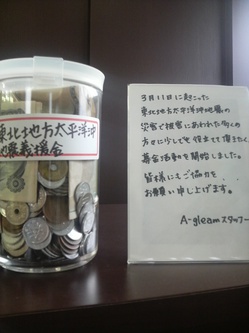 東北地方太平洋沖
地震義援金
3月11日に起こった
東北地方太平洋沖地震の
災害で被害にあわれた多くの
方々に少しでも役立てて頂きたく
募金活動を開始しました。
皆様にもご協力を
お願い申し上げます。
A-gleamスタッフ一同